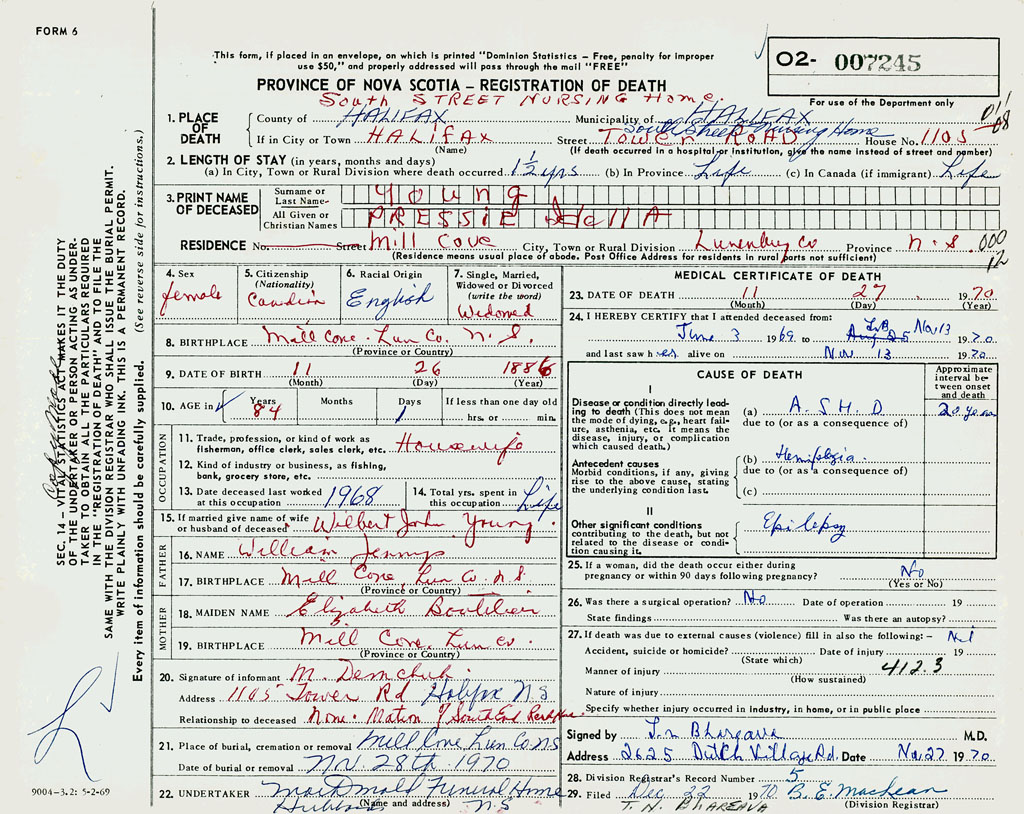 FORM 6
This form, if placed in an envelope, on which is printed "Dominion Statistics – Free, penalty for improper
use $50," and properly addressed will pass through the mail "FREE"
O2- 007245
For use of the Department only
PROVINCE OF NOVA SCOTIA – REGISTRATION OF DEATH
South STREET NURSING Home
1. PLACE OF DEATH
County of HALIFAX Municipality of HALIFAX
South Street Nursing Home
If in City or Town HALIFAX Street Tower ROAD House No. 1105
(Name) (If death occurred in a hospital or institution, give the name instead of street and number)
2. LENGTH OF STAY (in years, months and days)
(a) In City, Town or Rural Division where death occurred 1 1/2 yrs (b) In Province Life (c) In Canada (if immigrant) Life
3. PRINT NAME OF DECEASED
Surname or Last Name- Young
All Given or Christian Names PRESSIE
RESIDENCE No. Street Mill Cove City, Town or Rural Division Lunenburg Co Province N.S. 000
12
(Residence means usual place of abode. Post Office Address for residents in rural parts not sufficient)
4. Sex female
5. Citizenship (Nationality) Canadian
6. Racial Origin English
7. Single, Married, Widowed or Divorced (write the word) Widowed
8. BIRTHPLACE Mill Cove. Lun Co. N.S.
(Province or Country)
9. DATE OF BIRTH 11 26 1886
(Month) (Day) (Year)
10. AGE in Years 84 Months Days 1 If less than one day old hrs. or min.
OCCUPATION
11. Trade, profession, or kind of work as fisherman, office clerk, sales clerk, etc. Housewife
12. Kind of industry or business, as fishing, bank, grocery store, etc.
13. Date deceased last worked at this occupation 1968
14. Total yrs. spent in this occupation Life
15. If married give name of wife or husband of deceased Wilbert John Young
FATHER
16. NAME William
17. BIRTHPLACE Mill Cove, Lun Co. N.S.
(Province or Country)
MOTHER
18. MAIDEN NAME Elizabeth Boutilier
19. BIRTHPLACE Mill Cove, Lun Co.
(Province or Country)
20. Signature of informant M. Demchuk
Address 1105 Tower Rd Halifax N.S
Relationship to deceased None. Matron of South End
21. Place of burial, cremation or removal Mill Cove Lun Co NS
Date of burial or removal Nov. 28th. 1970
22. UNDERTAKER MacDonald Funeral Home
(Name and address) Hubbards N.S
9004–3.2: 5-2-69
MEDICAL CERTIFICATE OF DEATH
23. DATE OF DEATH 11 27 1970
(Month) (Day) (Year)
24. I HEREBY CERTIFY that I attended deceased from:
June 3 1969 to Nov 13 1970
and last saw her alive on Nov. 13 1970
CAUSE OF DEATH
Approximate interval between onset and death
I
Disease or condition directly leading to death (This does not mean the mode of dying, e.g., heart failure, asthenia, etc. It means the disease, injury, or complication which caused death.)
(a) A.S.H.D 20 years
due to (or as a consequence of)
Antecedent causes
Morbid conditions, if any, giving rise to the above cause, stating the underlying condition last.
(b) Hemiplegia
due to (or as a consequence of)
(c)
II
Other significant conditions contributing to the death, but not related to the disease or condition causing it.
Epilepsy
25. If a woman, did the death occur either during pregnancy or within 90 days following pregnancy? No
(Yes or No)
26. Was there a surgical operation? No Date of operation 19
State findings Was there an autopsy?
27. If death was due to external causes (violence) fill in also the following: – Nil
Accident, suicide or homicide? Date of injury 19
(State which)
Manner of injury 412.3
(How sustained)
Nature of injury
Specify whether injury occurred in industry, in home, or in public place
Signed by T.N Bhargava M.D.
Address 2625 Dutch Village Rd. Date Nov. 27 1970
28. Division Registrar's Record Number 5
29. Filed Dec 22 1970 B. E. MacLean
(Division Registrar)
T. N. BHARGAVA
SEC. 14 – VITAL STATISTICS ACT MAKES IT THE DUTY
OF THE UNDERTAKER OR PERSON ACTING AS UNDERTAKER TO OBTAIN ALL THE PARTICULARS REQUIRED
IN THE "REGISTRATION OF DEATH" AND TO FILE THE
SAME WITH THE DIVISION REGISTRAR WHO SHALL ISSUE THE BURIAL PERMIT.
WRITE PLAINLY WITH UNFADING INK. THIS IS A PERMANENT RECORD.
Every item of information should be carefully supplied. (See reverse side for instructions.)